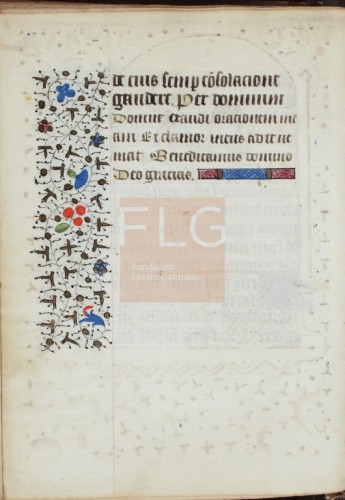 de eius semp cōsolacione
gaudere. Per dominum
Domine exaudi orationem me
am Et clamor meus ad te ue
niat. Benedicamus domino
Deo gracias.
FLG
fundación
Lázaro Galdiano